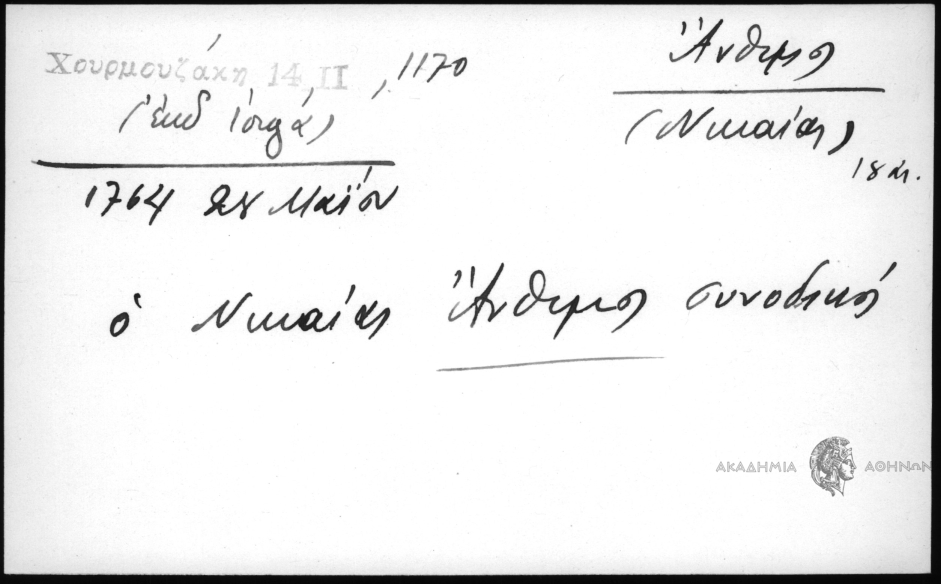 Χουρμουζάκη 14,II, 1170
(ἐκδ Ἰόργα)
1764 28 Μαΐου
Ἄνθιμος
(Νικαίας)
18 αι.
ὁ Νικαίας Ἄνθιμος συνοδικός
ΑΚΑΔΗΜΙΑ ΑΘΗΝΩΝ